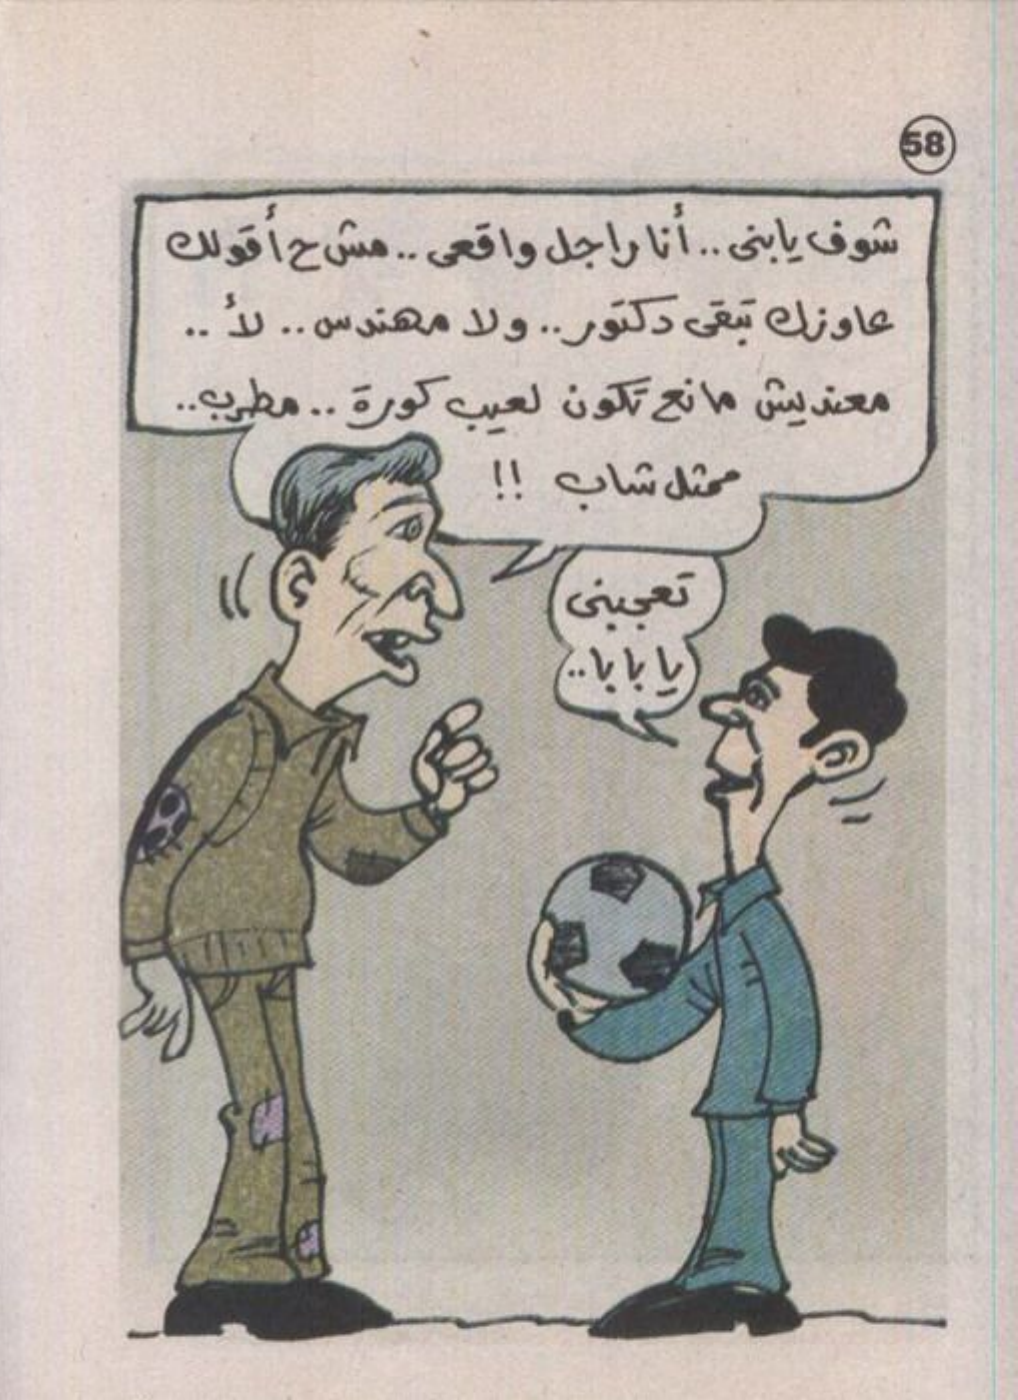 58
شوف يابنى .. أنا راجل واقعى .. مش ح أقولك
عاوزك تبقى دكتور .. ولا مهندس .. لأ ..
معنديش مانع تكون لعيب كورة .. مطرب ..
ممثل شاب !!
تعجبنى
يا بابا ..